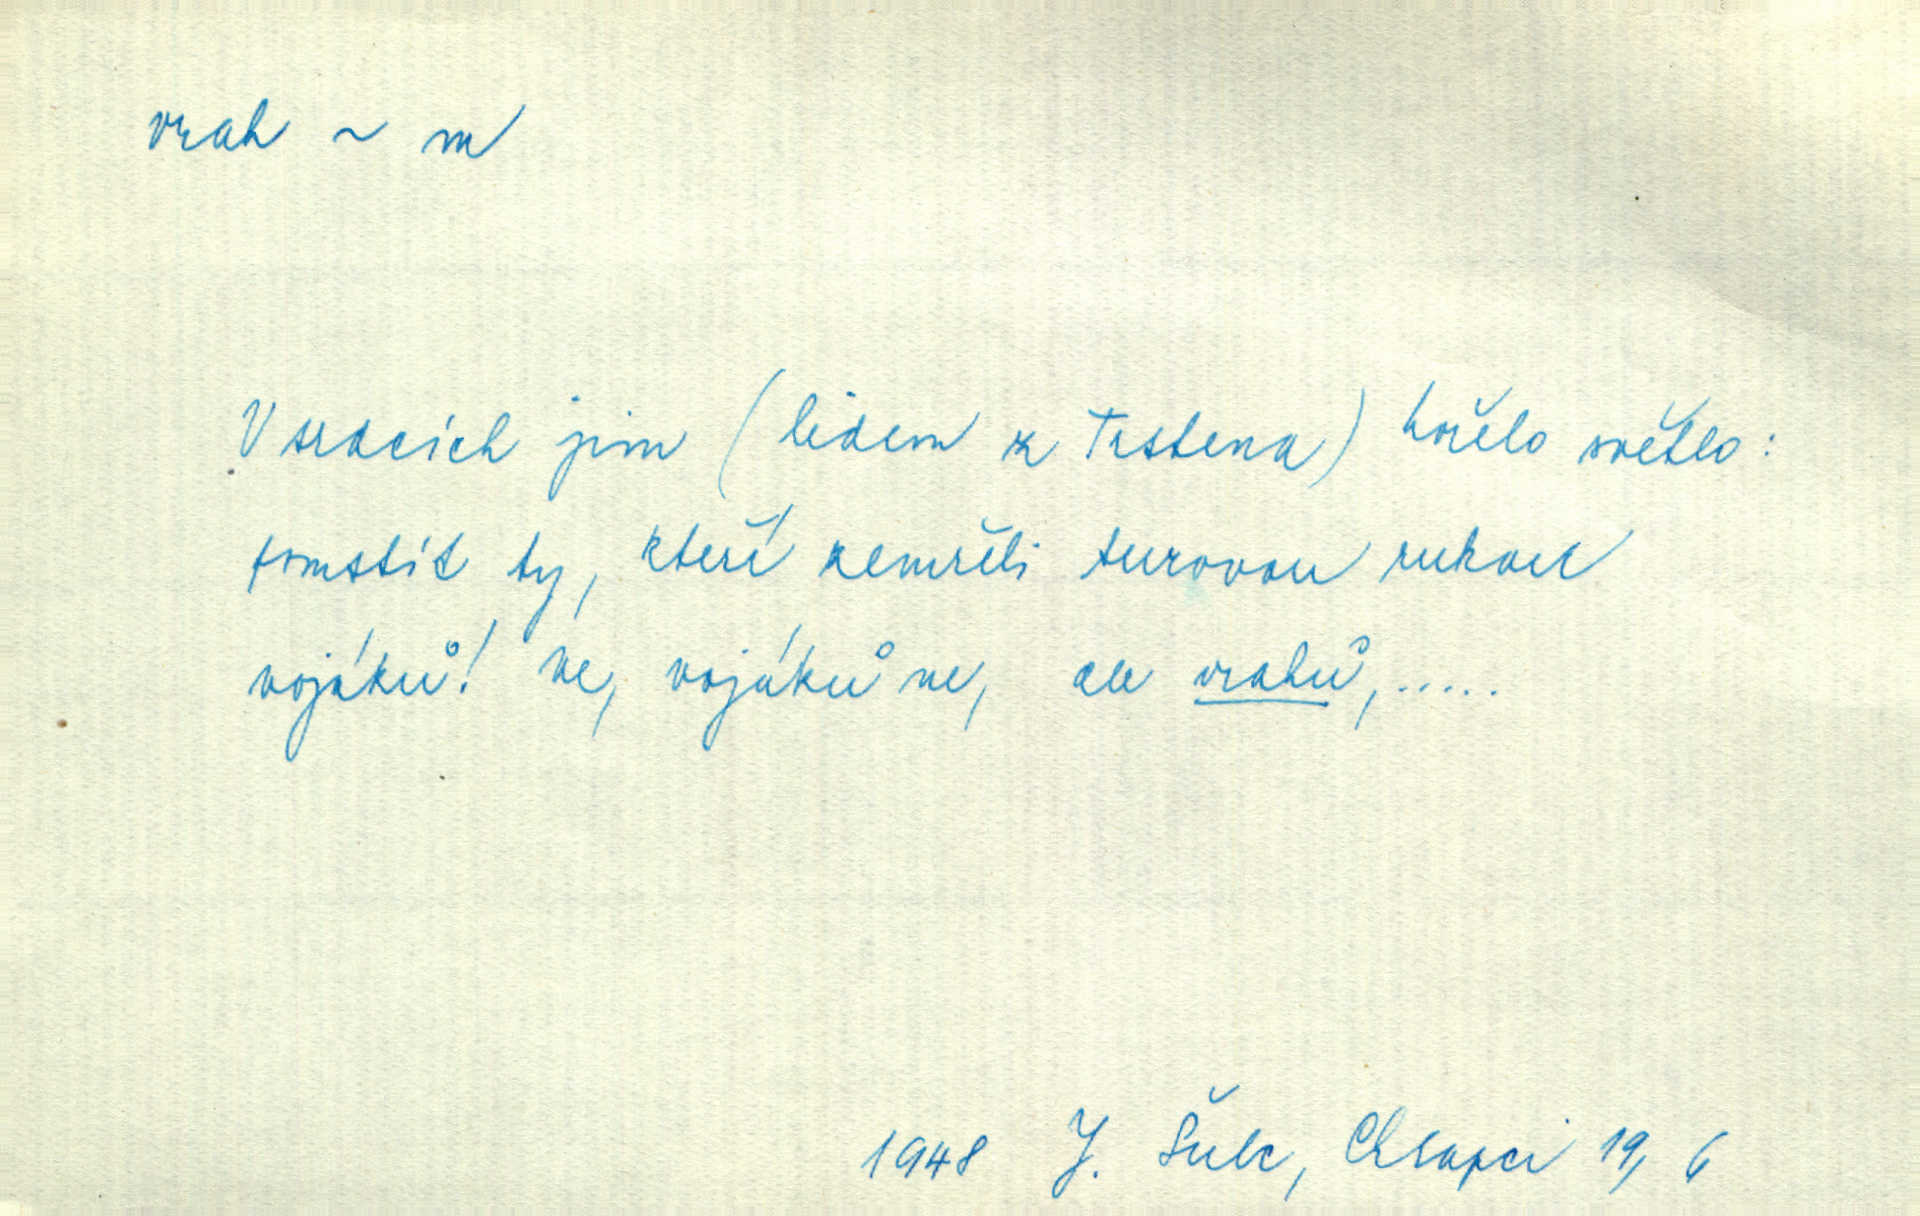 vrah ~ m
V srdcích jim (lidem z Trstena) hořelo světlo:
pomstít ty, kteří zemřeli surovou rukou
vojáků! Ne, vojáků ne, ale vrahů,.....
1948 J. Šulc, Chlapci 19, 6